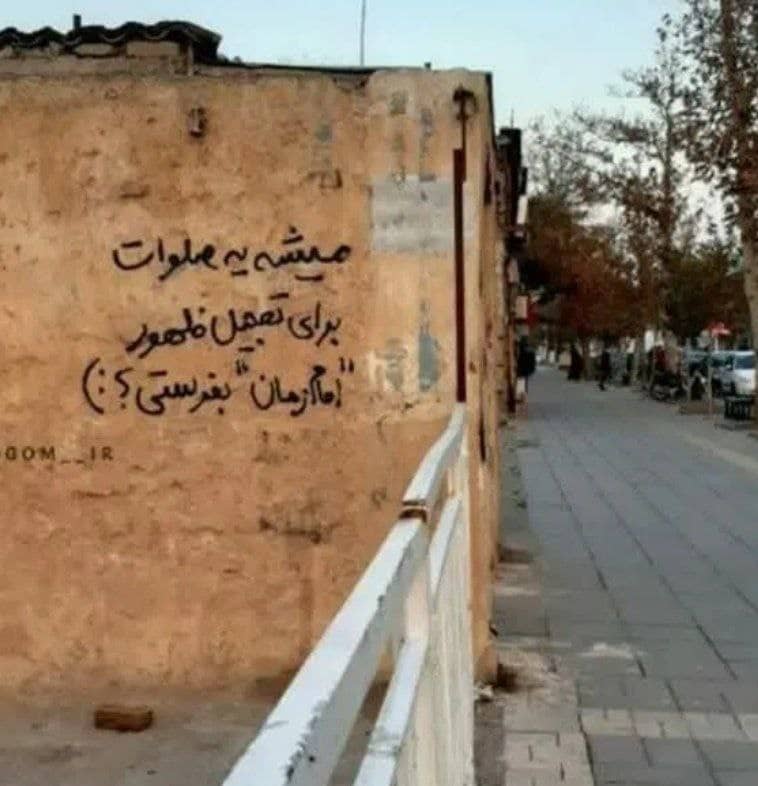 میشه یه صلوات
برای تعجیل ظهور
"امام زمان" بفرستی؟:)
DOM__IR